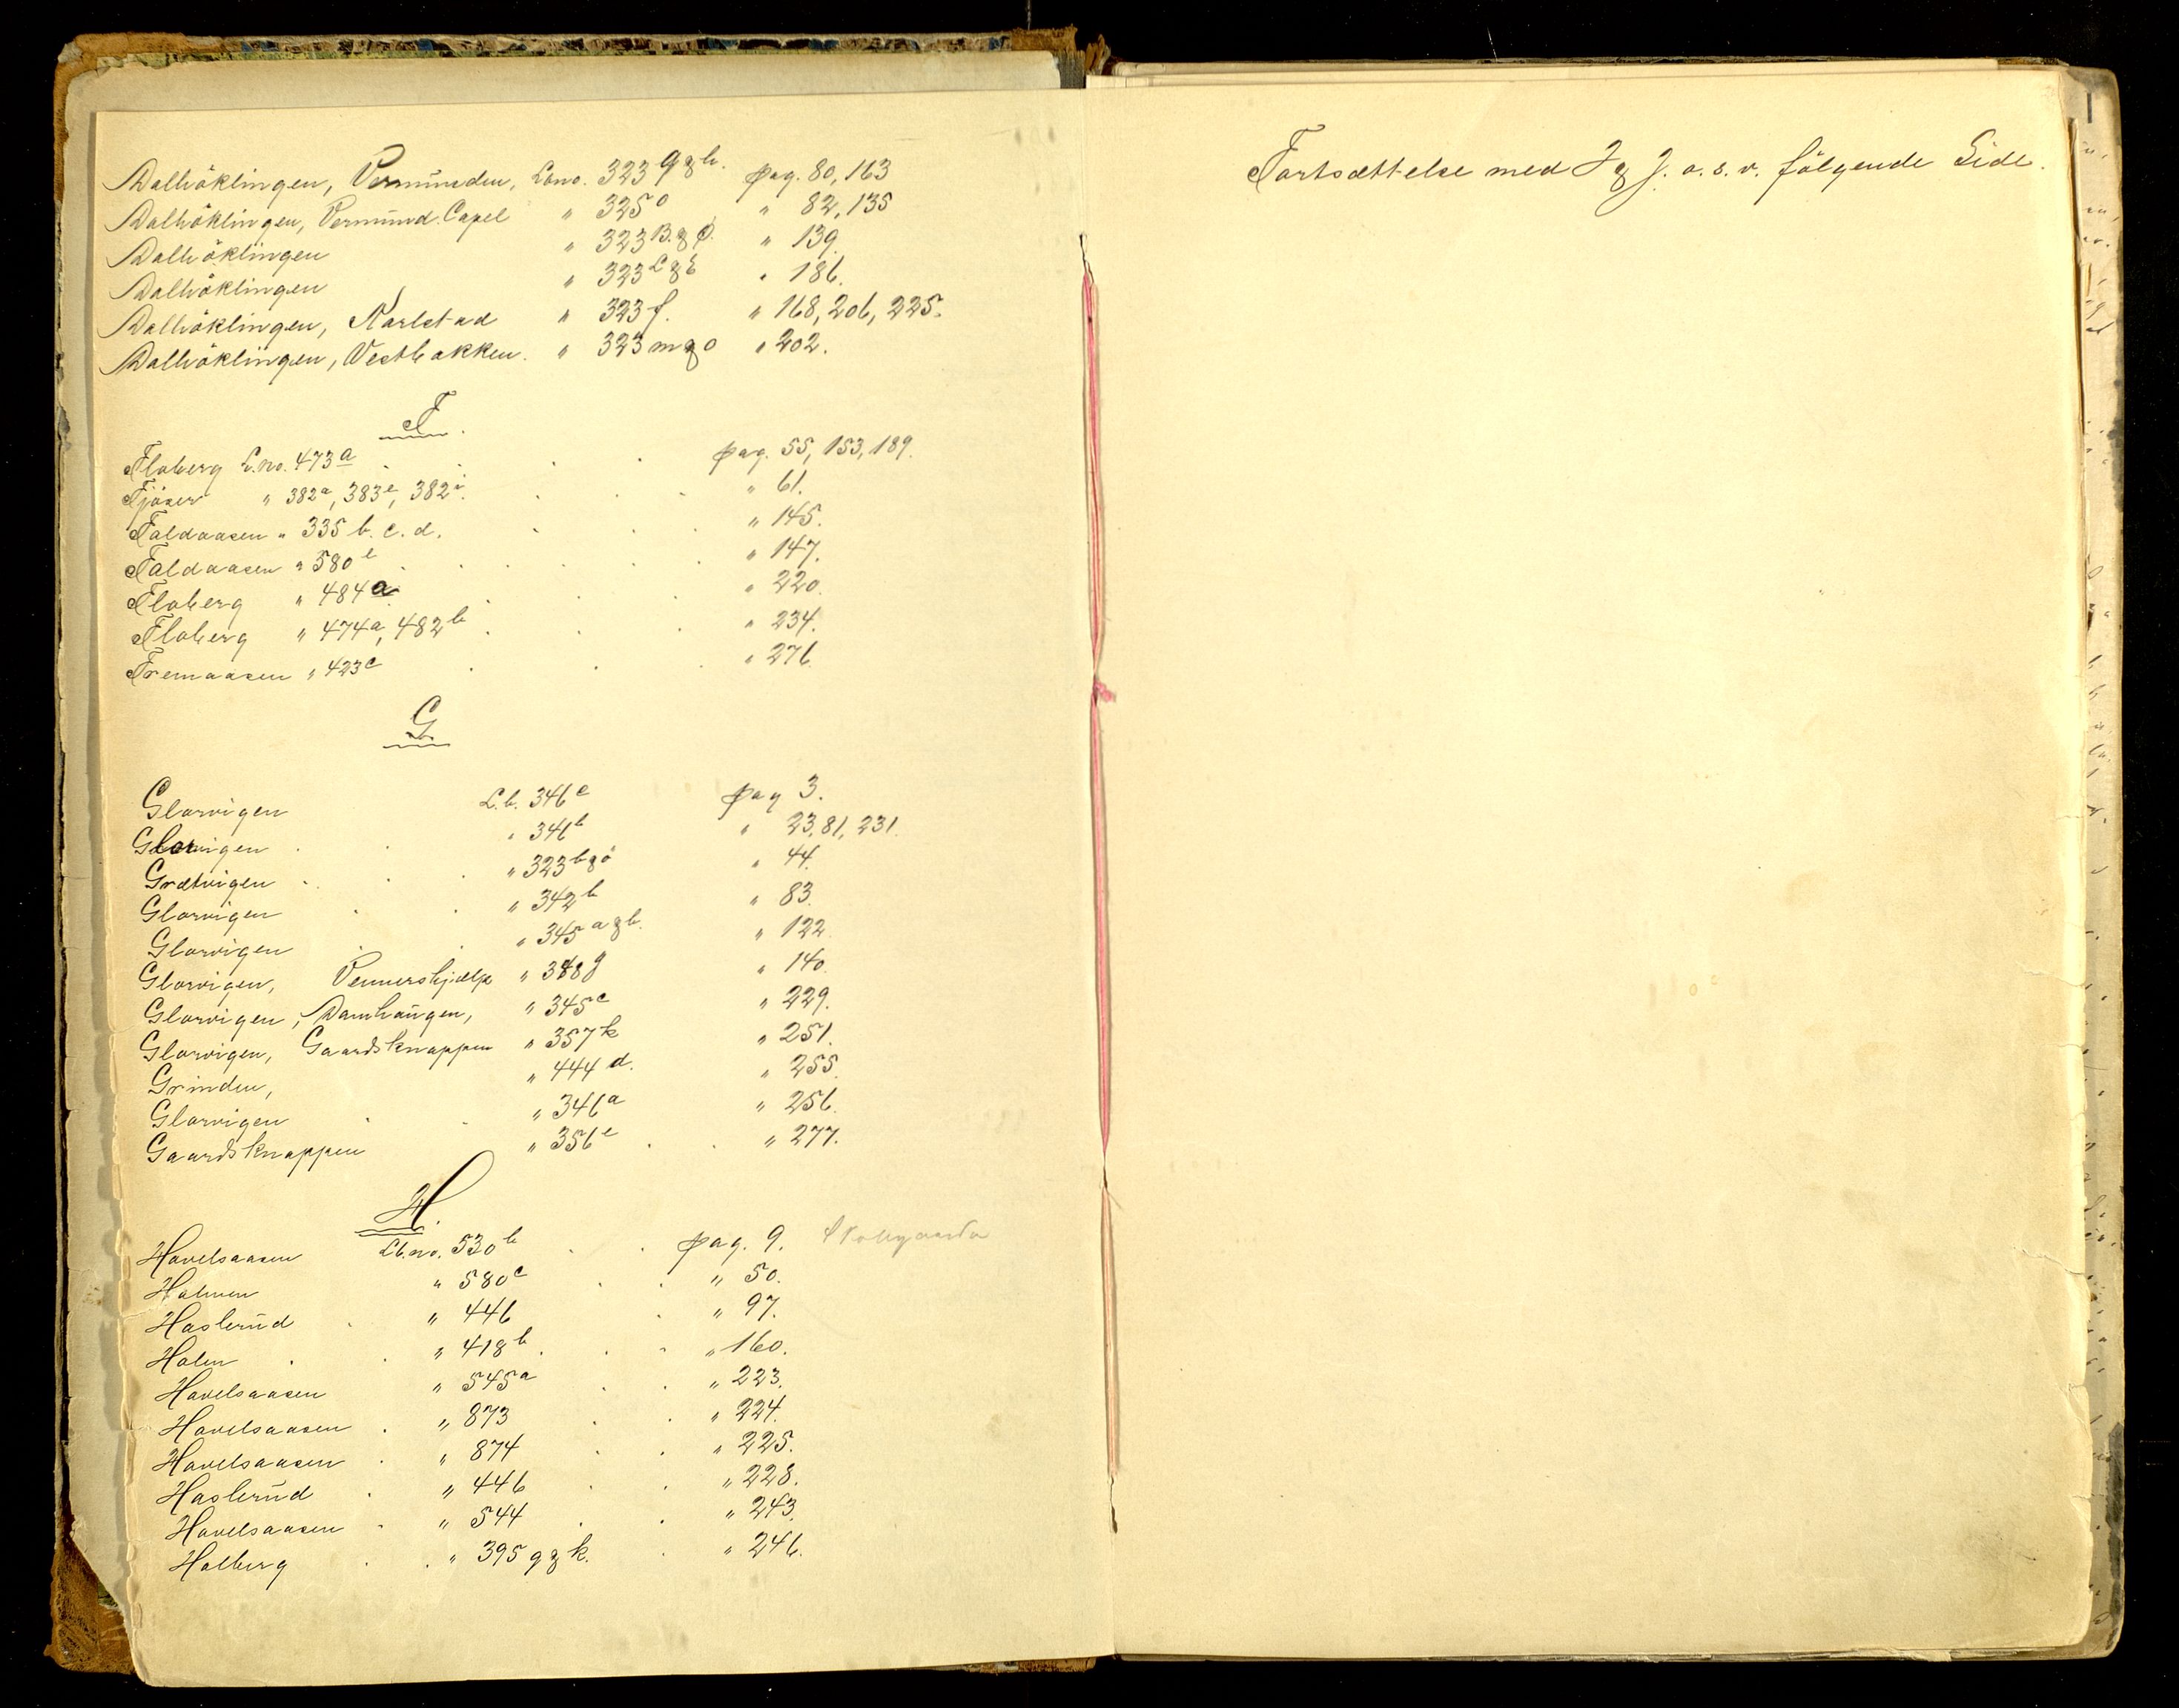 Dalhöklingen, Vermunden, Lbno. 323 g & h. pag. 80, 163
Dalhöklingen, Vermund. Capel " 325 o " 82, 135
Dalhöklingen " 323 B. & " 139.
Dalhöklingen " 323 L & " 186.
Dalhöklingen, Karlstad " 323 f. " 168, 206, 225.
Dalhöklingen, Vestbakken. " 323 m & o " 202.
F.
Floberg L.no. 473 a pag. 55, 153, 189.
Fjöser " 382 a, 383 e, 382 i. " 61.
Faldaasen " 335 b. c. d. " 145.
Faldaasen " 580 l " 147.
Floberg " 484 a. " 220.
Floberg " 474 a, 482 b " 234.
Fremaasen " 423 c " 276.
G
Glorvigen L.b. 346 c pag 3.
Glorvigen " 341 b " 23, 81, 231.
Grætvigen " 323 b & ö " 44.
Glorvigen " 342 b " 83.
Glorvigen " 345 a & b. " 122.
Glorvigen, Vennershjælp " 348 g " 140.
Glorvigen, Damhaugen, " 345 c " 229.
Glorvigen, Gaardsknappen " 357 k " 251.
Grinden, " 444 d. " 255.
Glorvigen " 346 a " 256.
Gaardsknappen " 356 e " 277.
H.
Havelsaasen Lb.no. 530 b pag. 9.
Holmen " 580 c " 50.
Haslerud " 446 " 97.
Holm " 418 b. " 160.
Havelsaasen " 545 a " 223.
Havelsaasen " 873 " 224.
Havelsaasen " 874 " 225.
Haslerud " 446 " 228.
Havelsaasen " 544 " 243.
Holberg " 395 g & k. " 246.
Fortsættelse med I & J. o. s. v. fölgende Side.